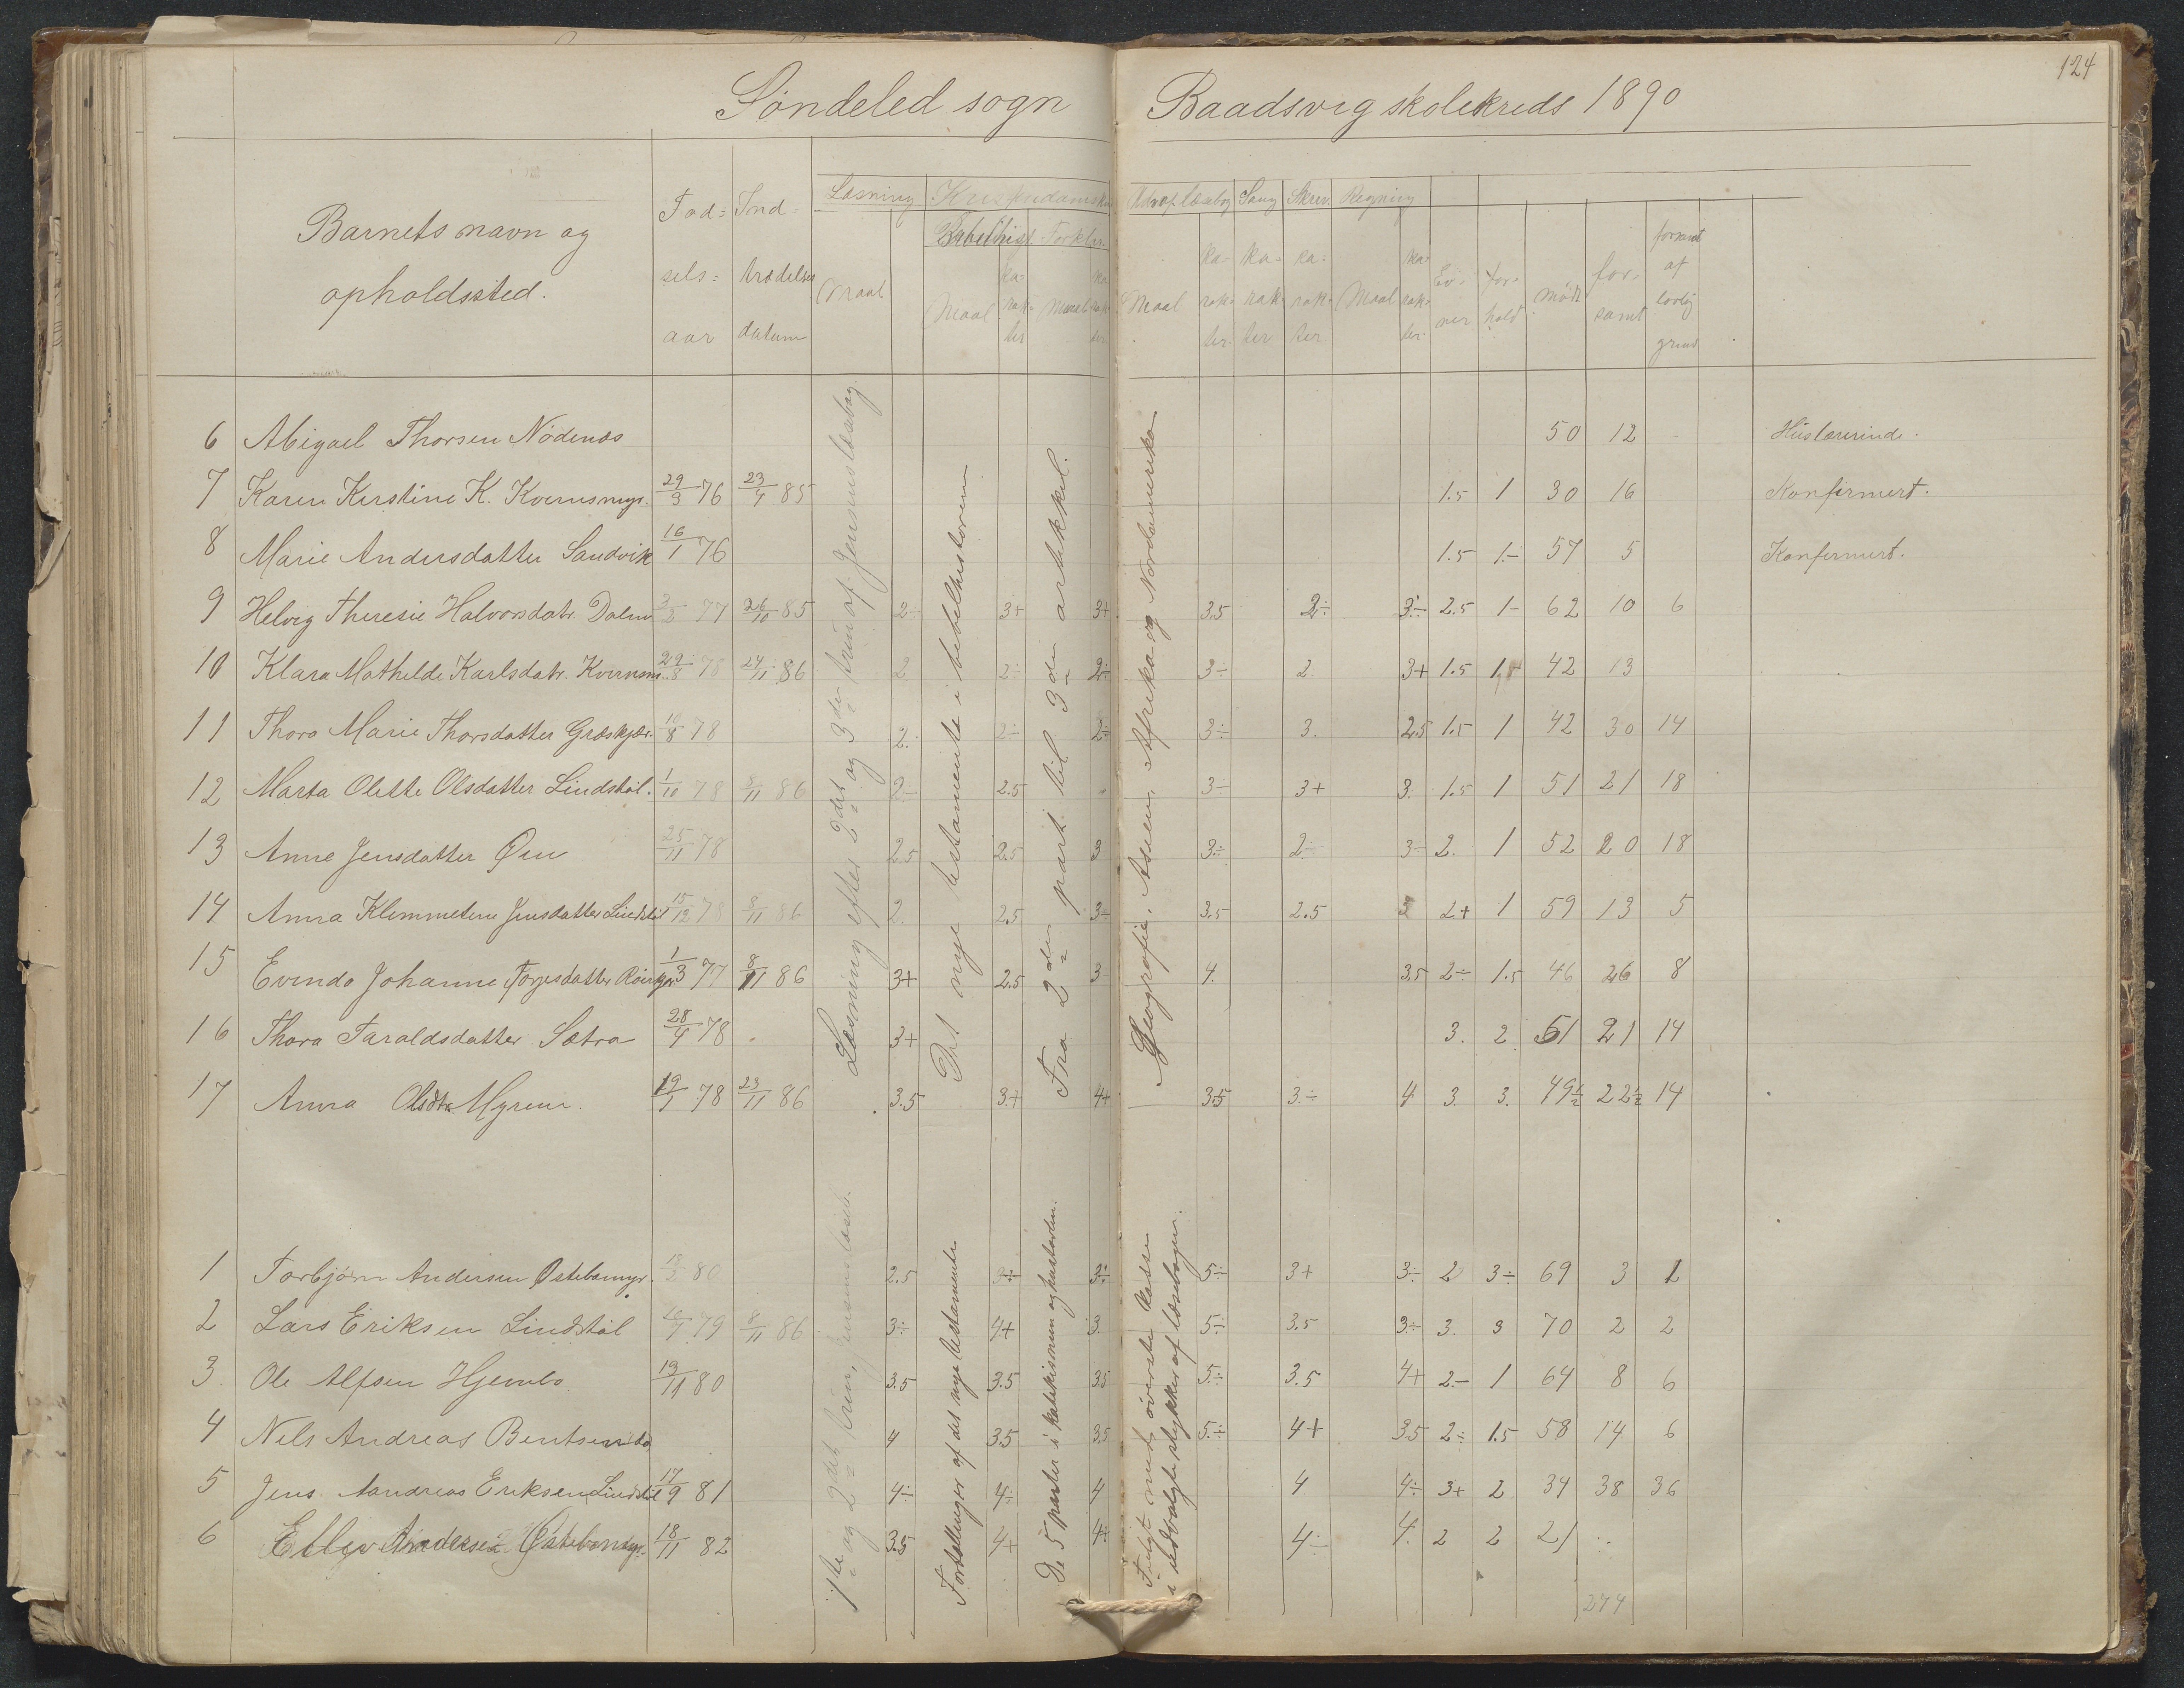 124
Söndeled sogn Baadsvig skolekreds 1890
Barnets navn og opholdssted.
Fød=sels=aar
Ind=trædelses datum
Læsning
Maal
Kristendomsku
Bibelhist. Maal karakter
Forklar. Maal karakter
Udvap læsebog Maal karakter.
Sang karakter
Skriv. karakter.
Regning Maal karakter.
Evner
forhold
mødt
forsømt
forsømt af lovlig grund
Læsning efter 2det og 3die trin af Jensens læsebog.
Det nye testamente i bibelhistorien
Fra 2den part til 3die artikkel.
Geografie. Asien, Afrika og Nordamerika
6 Abigael Thorsen Nödenæs 50 12 Huslærerinde.
7 Karen Kirstine K. Kvernsmyr. 29/3 76 23/4 85 1.5 1 30 16 Konfirmert.
8 Marie Andersdatter Sandvik 16/1 76 1.5 1- 57 5 Konfirmert.
9 Helvig Theresie Halvorsdatr. Dalen 2/2 77 26/10 85 2÷ 3+ 3+ 3.5 2÷ 3÷ 2.5 1- 62 10 6
10 Klara Mathelde Karlsdatr. Kvernsm. 29/8 78 24/11 86 2 2÷ 2÷ 3÷ 2 3+ 1.5 1.5 42 13
11 Thora Marie Thorsdatter Græskjær. 10/8 78 2. 2÷ 2÷ 3÷ 3. 2.5 1.5 1 42 30 14
12 Marta Olette Olsdatter Lindstöl. 1/10 78 8/11 86 2÷ 2.5 3÷ 3+ 3. 1.5 1 51 21 18
13 Anne Jensdatter Öen 25/11 78 2.5 2.5 3 3÷ 2÷ 3÷ 2. 1 52 20 18
14 Anna Klemmetine Jensdatter Lindstöl 15/12 78 8/11 86 2. 2.5 3÷ 3.5 2.5 3 2+ 1 59 13 5
15 Evinda Johanne Torjesdatter 1/3 77 8/11 86 3+ 2.5 3 4. 3.5 2÷ 1.5 46 26 8
16 Thora Taraldsdatter Sætra 28/4 78 3+ 3. 2 51 21 14
17 Anna Olsdtr. Myrene. 19/7 78 23/11 86 3.5 3+ 4+ 3.5 3÷ 4 3. 3. 49½ 22½ 14
1ste og 2det trin, Jensens læseb.
Fortællinger af det nye testamente
De 5 parter i katekismen og hustavlen.
Fulgt med øverste klasse
i udvalgte stykker af læsebogen.
1 Torbjörn Andersen Østebømyr. 13/2 80 2.5 3÷ 3÷ 5÷ 3+ 3÷ 2 3÷ 69 3 1
2 Lars Eriksen Lindstöl 10/7 79 8/11 86 3÷ 4+ 3. 5÷ 3.5 3÷ 3. 3 70 2 2
3. Ole Alfsen Hjembo 19/11 80 3.5 3.5 3.5 5÷ 3.5 4+ 2÷ 1 64 8 6
4 Nels Andreas Bentsen 4 3.5 3.5 5÷ 4+ 3.5 2÷ 1.5 58 14 6
5 Jens Aandreas Eriksen Lindstöl 17/9 81 4÷ 4÷ 4 4 4÷ 3+ 2 34 38 36
6 Ellev Andersen Östebömyr. 18/11 82 3.5 4+ 4+ 4÷ 4. 2 2 21
274